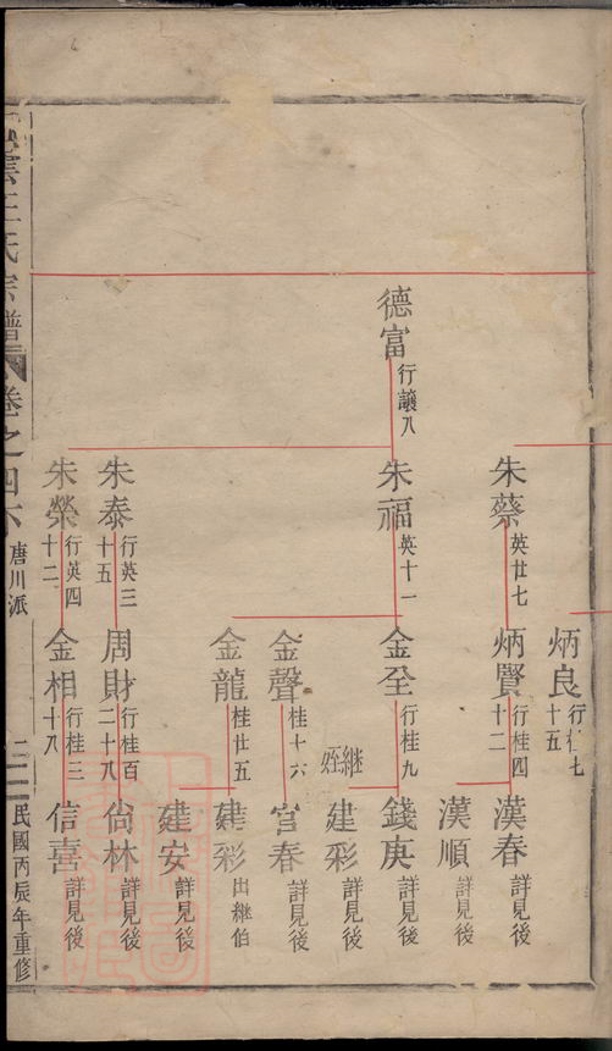 德富
行讓八
朱蔡
英廿七
朱福
英十一
朱泰
行英三
十五
朱榮
行英四
十二
炳良
十五
炳賢
行桂四
十二
金全
行桂九
金聲
桂十六
金龍
桂廿五
周財
行桂百
二十八
金相
行桂三
十八
漢春
詳見後
漢順
詳見後
錢庚
詳見後
継
姪
建彩
詳見後
春
詳見後
建彩
出継伯
建安
詳見後
尙林
詳見後
信喜
詳見後
雲王氏宗譜
卷之四
唐川派
民國丙辰年重修